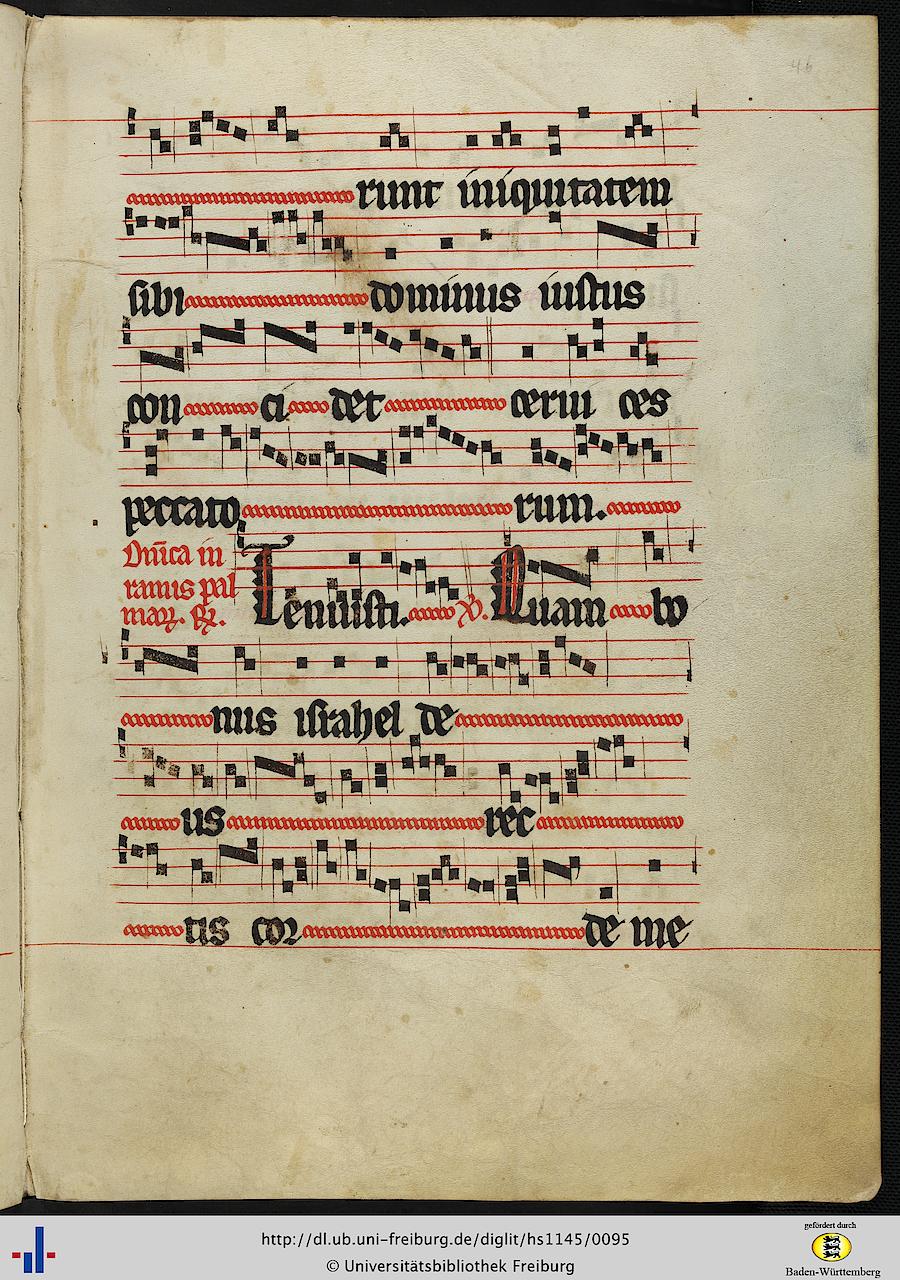 46
runt iniquitatem
sibi dominus iustus
con ci det cerui ces
peccato rum.
Dnica in
ramis pal
maꝝ. G̃.
Tenuisti. V̕. Quam bo
nus israhel de
us rec
tis cor de me
http://dl.ub.uni-freiburg.de/diglit/hs1145/0095
© Universitätsbibliothek Freiburg
gefördert durch
Baden-Württemberg